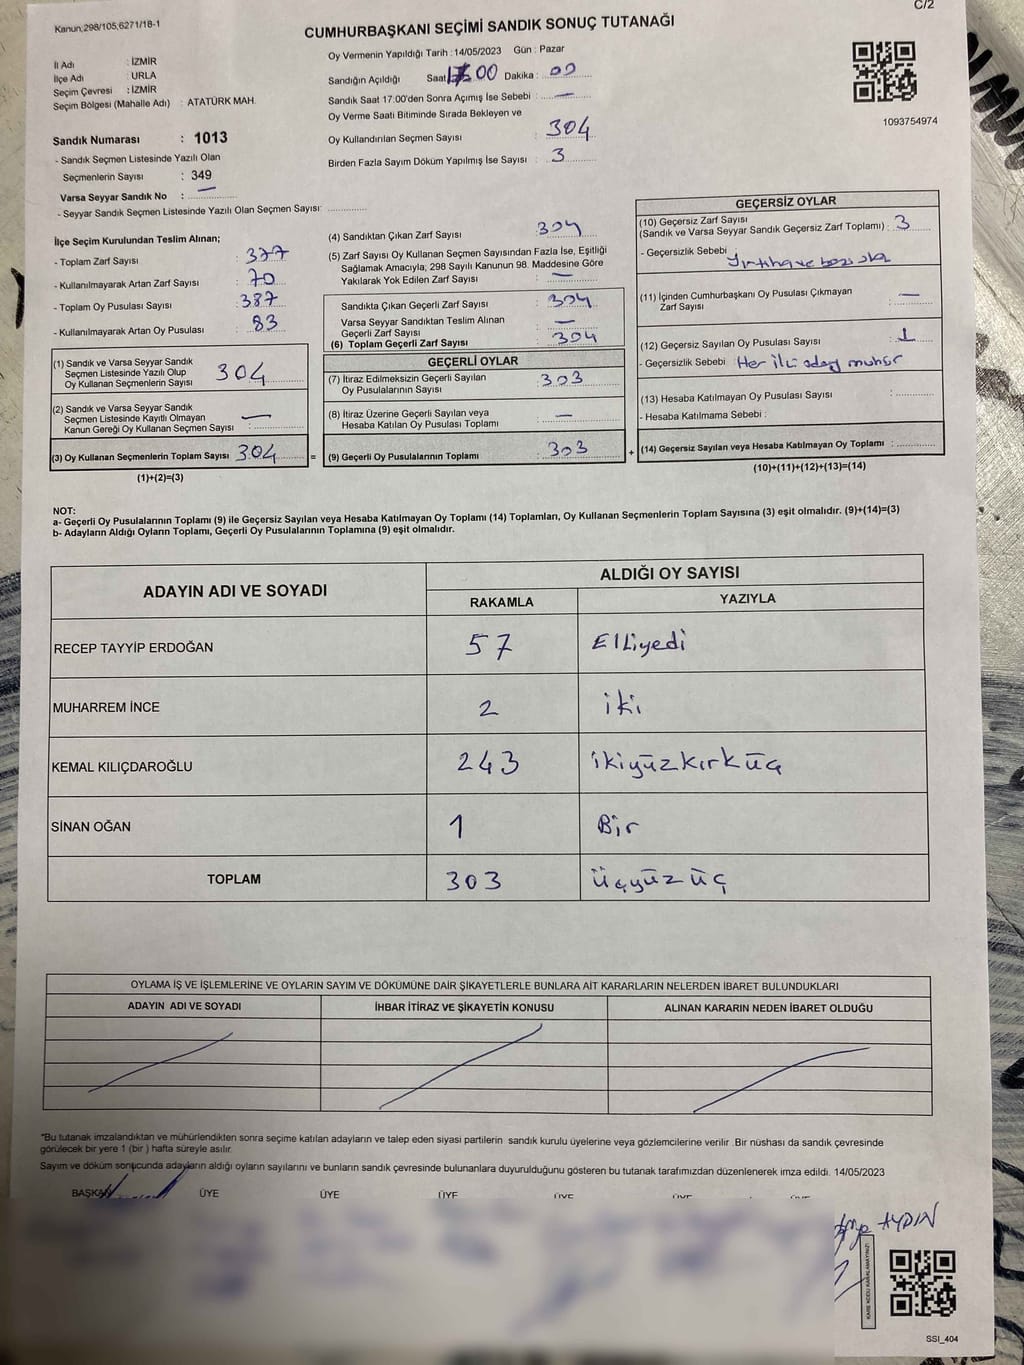 C/2
Kanun:298/105,6271/18-1
CUMHURBAŞKANI SEÇİMİ SANDIK SONUÇ TUTANAĞI
İl Adı : İZMİR
İlçe Adı : URLA
Seçim Çevresi : İZMİR
Seçim Bölgesi (Mahalle Adı) : ATATÜRK MAH.
Sandık Numarası : 1013
- Sandık Seçmen Listesinde Yazılı Olan
Seçmenlerin Sayısı : 349
Varsa Seyyar Sandık No : —
- Seyyar Sandık Seçmen Listesinde Yazılı Olan Seçmen Sayısı:
Oy Vermenin Yapıldığı Tarih : 14/05/2023 Gün : Pazar
Sandığın Açıldığı Saat 17:00 Dakika : 00
Sandık Saat 17:00'den Sonra Açımış İse Sebebi : —
Oy Verme Saati Bitiminde Sırada Bekleyen ve
Oy Kullandırılan Seçmen Sayısı : 304
Birden Fazla Sayım Döküm Yapılmış İse Sayısı : 3
1093754974
İlçe Seçim Kurulundan Teslim Alınan;
- Toplam Zarf Sayısı : 377
- Kullanılmayarak Artan Zarf Sayısı : 70
- Toplam Oy Pusulası Sayısı : 387
- Kullanılmayarak Artan Oy Pusulası : 83
(1) Sandık ve Varsa Seyyar Sandık
Seçmen Listesinde Yazılı Olup
Oy Kullanan Seçmenlerin Sayısı : 304
(2) Sandık ve Varsa Seyyar Sandık
Seçmen Listesinde Kayıtlı Olmayan
Kanun Gereği Oy Kullanan Seçmen Sayısı : —
(3) Oy Kullanan Seçmenlerin Toplam Sayısı 304
(1)+(2)=(3)
=
(4) Sandıktan Çıkan Zarf Sayısı : 304
(5) Zarf Sayısı Oy Kullanan Seçmen Sayısından Fazla İse, Eşitliği
Sağlamak Amacıyla, 298 Sayılı Kanunun 98. Maddesine Göre
Yakılarak Yok Edilen Zarf Sayısı : —
Sandıkta Çıkan Geçerli Zarf Sayısı : 304
Varsa Seyyar Sandıktan Teslim Alınan
Geçerli Zarf Sayısı : —
(6) Toplam Geçerli Zarf Sayısı : 304
GEÇERLİ OYLAR
(7) İtiraz Edilmeksizin Geçerli Sayılan
Oy Pusulalarının Sayısı : 303
(8) İtiraz Üzerine Geçerli Sayılan veya
Hesaba Katılan Oy Pusulası Toplamı : —
(9) Geçerli Oy Pusulalarının Toplamı : 303
+
GEÇERSİZ OYLAR
(10) Geçersiz Zarf Sayısı
(Sandık ve Varsa Seyyar Sandık Geçersiz Zarf Toplamı) : 3
- Geçersizlik Sebebi
(11) İçinden Cumhurbaşkanı Oy Pusulası Çıkmayan
Zarf Sayısı : —
(12) Geçersiz Sayılan Oy Pusulası Sayısı : 1
- Geçersizlik Sebebi : Her iki aday mühür
(13) Hesaba Katılmayan Oy Pusulası Sayısı :
- Hesaba Katılmama Sebebi :
(14) Geçersiz Sayılan veya Hesaba Katılmayan Oy Toplamı :
(10)+(11)+(12)+(13)=(14)
NOT:
a- Geçerli Oy Pusulalarının Toplamı (9) ile Geçersiz Sayılan veya Hesaba Katılmayan Oy Toplamı (14) Toplamları, Oy Kullanan Seçmenlerin Toplam Sayısına (3) eşit olmalıdır. (9)+(14)=(3)
b- Adayların Aldığı Oyların Toplamı, Geçerli Oy Pusulalarının Toplamına (9) eşit olmalıdır.
ADAYIN ADI VE SOYADI
ALDIĞI OY SAYISI
RAKAMLA YAZIYLA
RECEP TAYYİP ERDOĞAN 57 Elliyedi
MUHARREM İNCE 2 iki
KEMAL KILIÇDAROĞLU 243 ikiyüzkırküç
SİNAN OĞAN 1 Bir
TOPLAM 303 Üçyüzüç
OYLAMA İŞ VE İŞLEMLERİNE VE OYLARIN SAYIM VE DÖKÜMÜNE DAİR ŞİKAYETLERLE BUNLARA AİT KARARLARIN NELERDEN İBARET BULUNDUKLARI
ADAYIN ADI VE SOYADI İHBAR İTİRAZ VE ŞİKAYETİN KONUSU ALINAN KARARIN NEDEN İBARET OLDUĞU
*Bu tutanak imzalandıktan ve mühürlendikten sonra seçime katılan adayların ve talep eden siyasi partilerin sandık kurulu üyelerine veya gözlemcilerine verilir .Bir nüshası da sandık çevresinde
görülecek bir yere 1 (bir ) hafta süreyle asılır.
Sayım ve döküm sonucunda adayların aldığı oyların sayılarını ve bunların sandık çevresinde bulunanlara duyurulduğunu gösteren bu tutanak tarafımızdan düzenlenerek imza edildi. 14/05/2023
BAŞKAN ÜYE ÜYE ÜYE ÜYE ÜYE ÜYE
AYDIN
KARE KODU KARALAMAYINIZ!
SSI_404